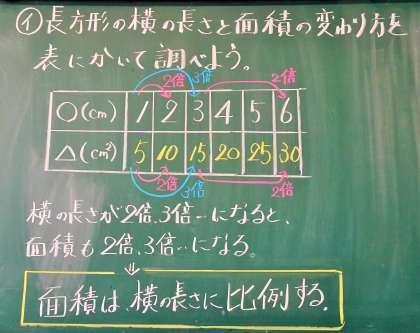 イ長方形の横の長さと面積の変わり方を
表にかいて調べよう。
2倍 3倍 2倍
○(cm) 1 2 3 4 5 6
△(cm²) 5 10 15 20 25 30
2倍 3倍 2倍
横の長さが2倍、3倍…になると、
面積も2倍、3倍…になる。
⇓
面積は、横の長さに比例する。